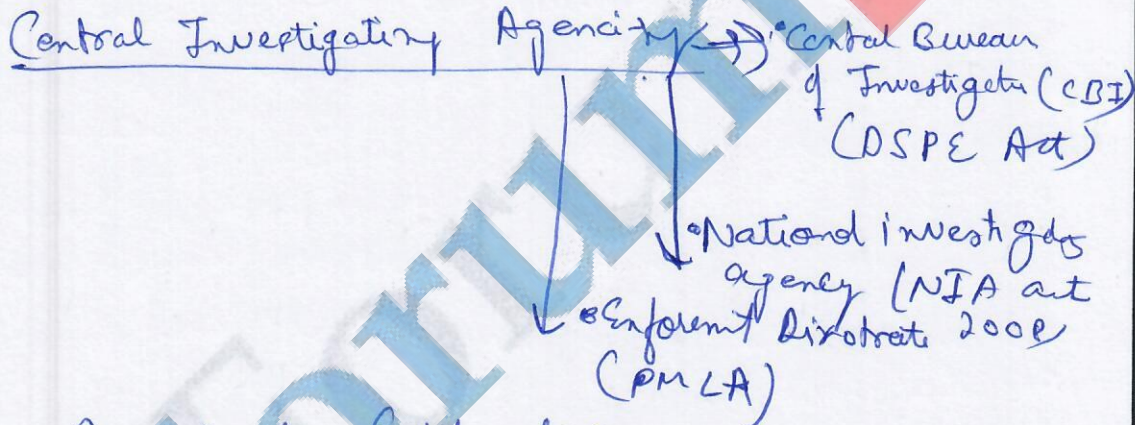 Central Investigating Agencity
• Contal Bureau
of Investigatn (CBI)
(DSPE Act)
• National investigatg
agency (NIA act
2008)
• Enforemnt Dirotrate
(PMLA)
orum